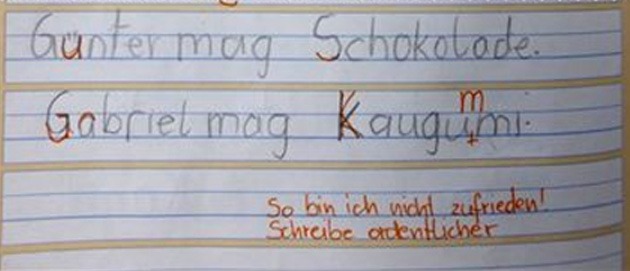 Gunter mag Schokolade.
Gabriel mag Kaugumi.
m
So bin ich nicht zufrieden!
Schreibe ordentlicher